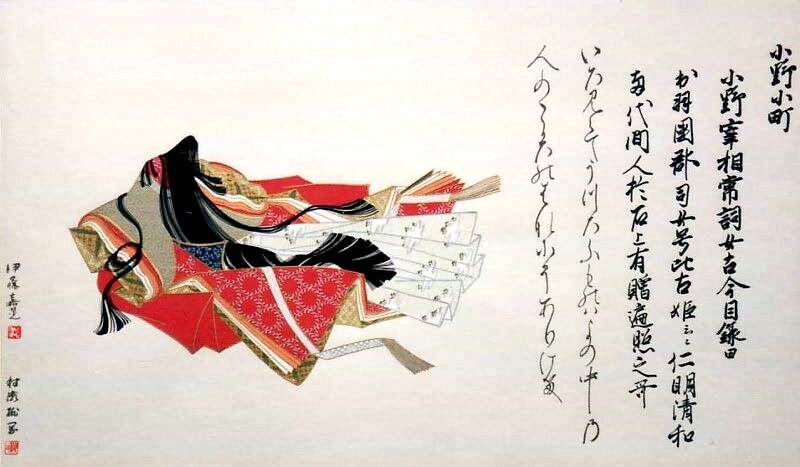 小野小町
小野宰相常詞女古今目録曰
出羽國郡司女号比古姫云々仁明清和
両代間人於石上有贈遍照之哥
いろ見えてうつろふものはよの中の
人のこゝろのはなにそありける
伊藤
村瀬